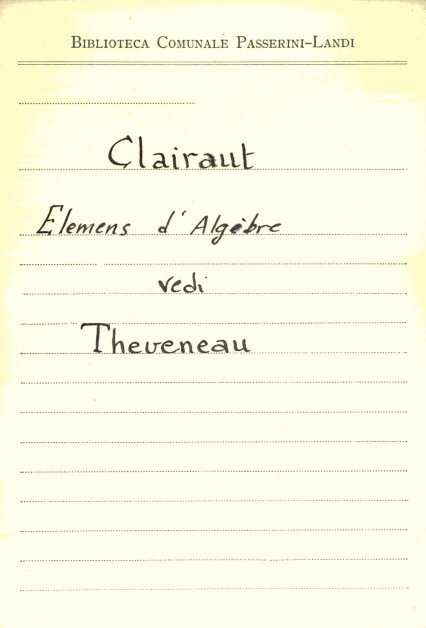 Biblioteca Comunale Passerini-Landi
Clairaut
Elemens d'Algèbre
vedi
Theveneau